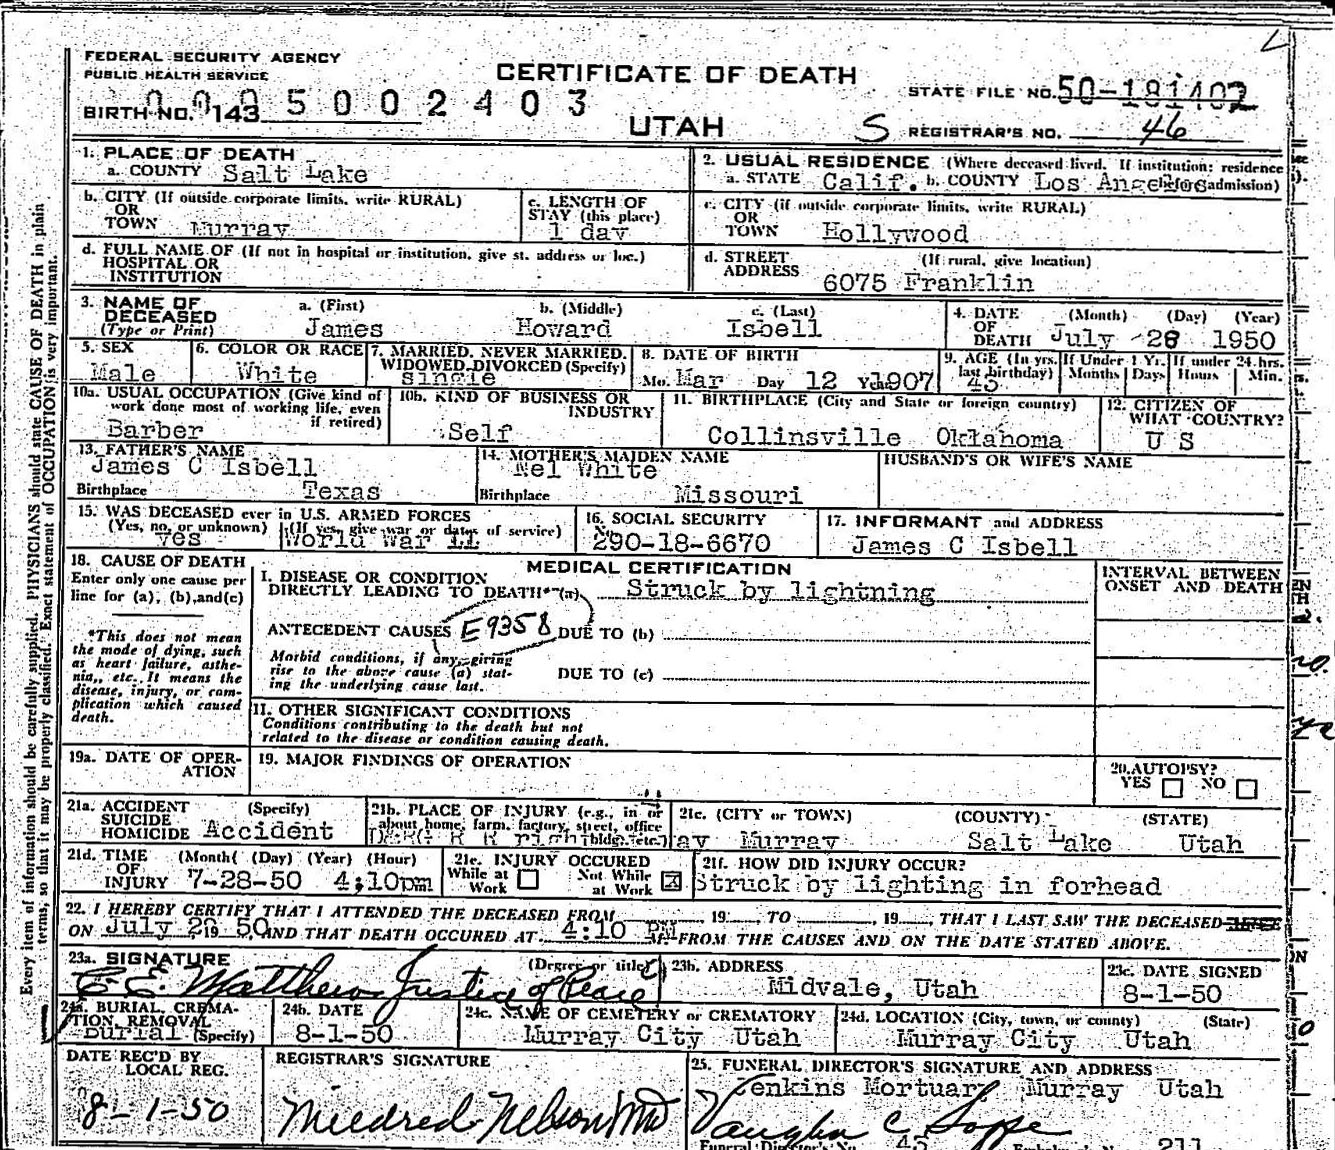 FEDERAL SECURITY AGENCY
PUBLIC HEALTH SERVICE
CERTIFICATE OF DEATH
STATE FILE NO. 50-181402
BIRTH NO. 143 0095002403
UTAH
S REGISTRAR'S NO. 46
1. PLACE OF DEATH
a. COUNTY Salt Lake
2. USUAL RESIDENCE (Where deceased lived. If institution: residence before admission)
a. STATE Calif. b. COUNTY Los Angeles
b. CITY (If outside corporate limits, write RURAL)
OR
TOWN Murray
c. LENGTH OF
STAY (this place)
1 day
c. CITY (if outside corporate limits, write RURAL)
OR
TOWN Hollywood
d. FULL NAME OF (If not in hospital or institution, give st. address or loc.)
HOSPITAL OR
INSTITUTION
d. STREET (If rural, give location)
ADDRESS
6075 Franklin
3. NAME OF DECEASED
(Type or Print)
a. (First) b. (Middle) c. (Last)
James Howard Isbell
4. DATE OF DEATH (Month) (Day) (Year)
July 28 1950
5. SEX
Male
6. COLOR OR RACE
White
7. MARRIED, NEVER MARRIED,
WIDOWED, DIVORCED (Specify)
single
8. DATE OF BIRTH
Mo. Mar Day 12 1907
9. AGE (In yrs. last birthday)
43
If Under 1 Yr. If under 24 hrs.
Months Days Hours Min.
10a. USUAL OCCUPATION (Give kind of
work done most of working life, even
if retired)
Barber
10b. KIND OF BUSINESS OR
INDUSTRY
Self
11. BIRTHPLACE (City and State or foreign country)
Collinsville Oklahoma
12. CITIZEN OF
WHAT COUNTRY?
U S
13. FATHER'S NAME
James C Isbell
Birthplace Texas
14. MOTHER'S MAIDEN NAME
Nel White
Birthplace Missouri
HUSBAND'S OR WIFE'S NAME
15. WAS DECEASED ever in U.S. ARMED FORCES
(Yes, no, or unknown) (If yes, give war or dates of service)
yes World War II
16. SOCIAL SECURITY
290-18-6670
17. INFORMANT and ADDRESS
James C Isbell
18. CAUSE OF DEATH
Enter only one cause per
line for (a), (b), and (c)
*This does not mean
the mode of dying, such
as heart failure, asthe-
nia, etc. It means the
disease, injury, or com-
plication which caused
death.
MEDICAL CERTIFICATION
I. DISEASE OR CONDITION
DIRECTLY LEADING TO DEATH* (a) Struck by lightning
ANTECEDENT CAUSES E9358 DUE TO (b)
Morbid conditions, if any, giving
rise to the above cause (a) stat-
ing the underlying cause last.
DUE TO (c)
II. OTHER SIGNIFICANT CONDITIONS
Conditions contributing to the death but not
related to the disease or condition causing death.
INTERVAL BETWEEN
ONSET AND DEATH
19a. DATE OF OPER-
ATION
19. MAJOR FINDINGS OF OPERATION
20. AUTOPSY?
YES NO
21a. ACCIDENT (Specify)
SUICIDE
HOMICIDE Accident
21b. PLACE OF INJURY (e.g., in or
about home, farm, factory, street, office
bldg., etc.)
21c. (CITY or TOWN) (COUNTY) (STATE)
Murray Salt Lake Utah
21d. TIME OF INJURY (Month) (Day) (Year) (Hour)
7-28-50 4:10pm
21e. INJURY OCCURED
While at Work Not While at Work X
21f. HOW DID INJURY OCCUR?
Struck by lighting in forhead
22. I HEREBY CERTIFY THAT I ATTENDED THE DECEASED FROM 19 TO , 19 , THAT I LAST SAW THE DECEASED
ON July 50, AND THAT DEATH OCCURED AT 4:10 PM FROM THE CAUSES AND ON THE DATE STATED ABOVE.
23a. SIGNATURE (Degree or title)
C. E. Matthews Justice of Peace
23b. ADDRESS
Midvale, Utah
23c. DATE SIGNED
8-1-50
24a. BURIAL, CREMA-
TION, REMOVAL
(Specify)
Burial
24b. DATE
8-1-50
24c. NAME OF CEMETERY or CREMATORY
Murray City Utah
24d. LOCATION (City, town, or county) (State)
Murray City Utah
DATE REC'D BY
LOCAL REG.
8-1-50
REGISTRAR'S SIGNATURE
Mildred Nelson MD
25. FUNERAL DIRECTOR'S SIGNATURE AND ADDRESS
Jenkins Mortuary Murray Utah
Vaughn C
45 211
Every item of information should be carefully supplied. PHYSICIANS should state CAUSE OF DEATH in plain
terms, so that it may be properly classified. Exact statement of OCCUPATION is very important.